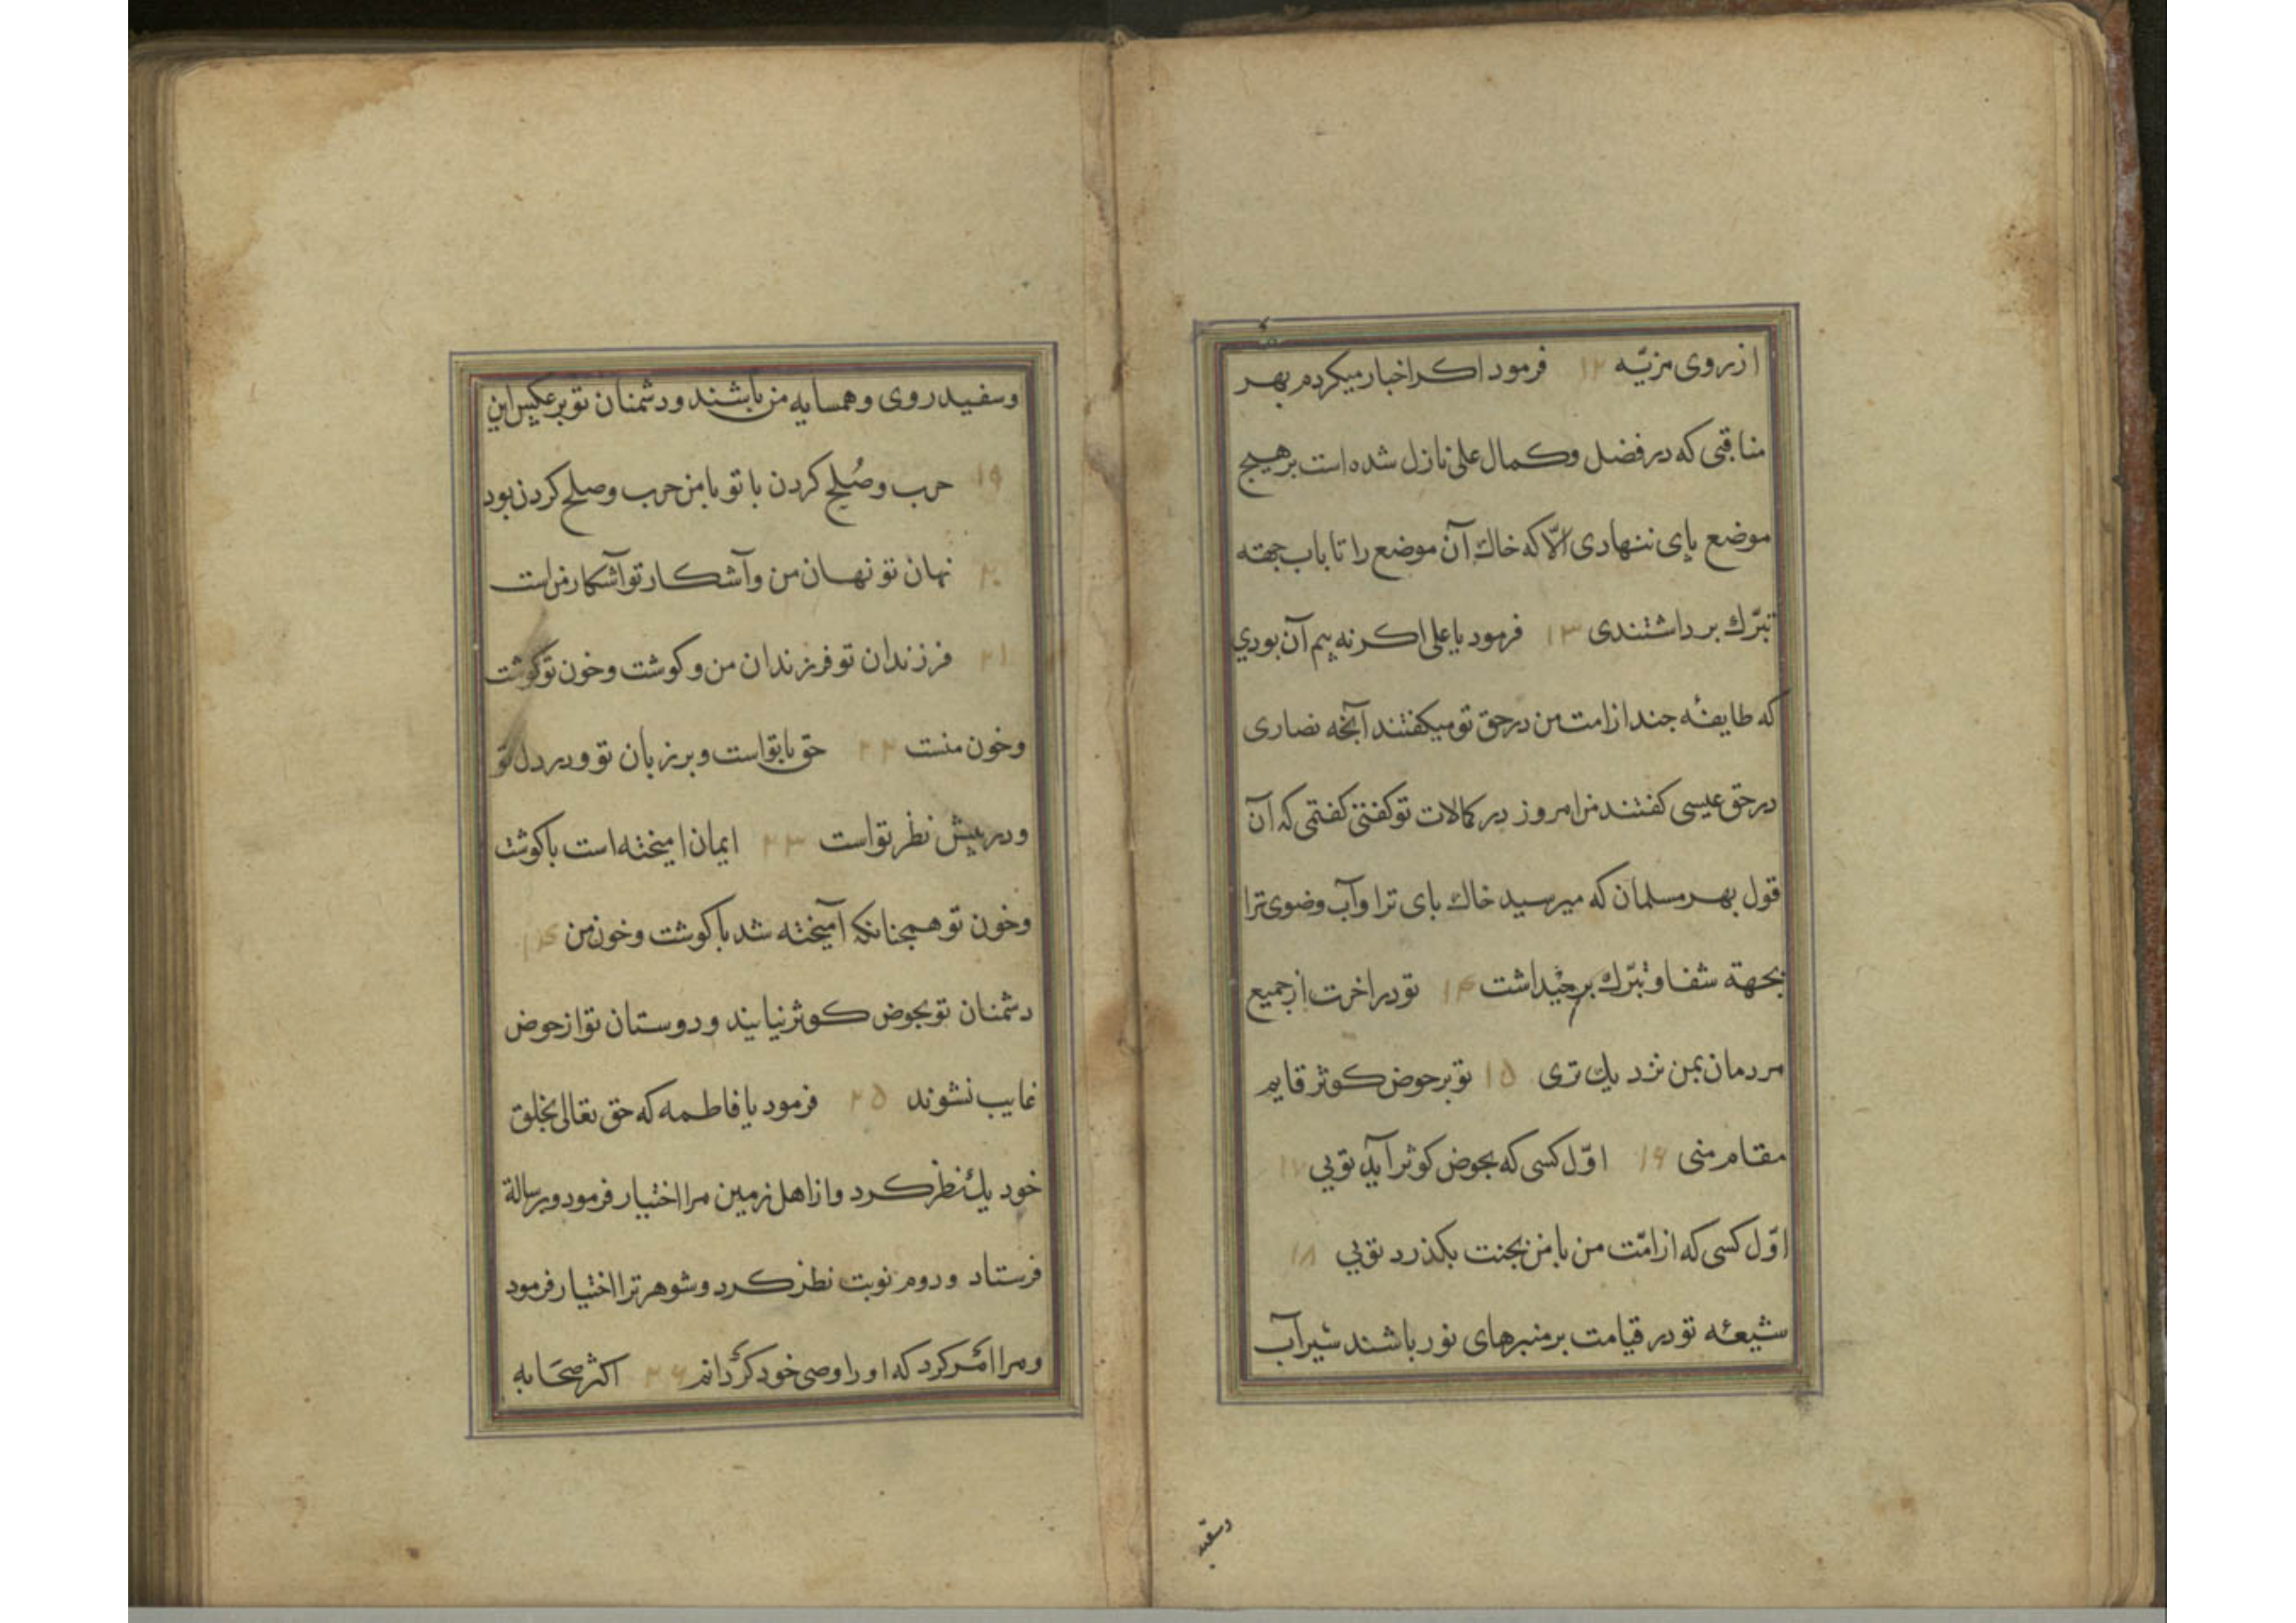 از روی مزیّه ۱۲ فرمود اکر اخبار میکردم بهر
مناقبی که در فضل وکمال علی نازل شده است بر هیچ
موضع پای ننهادی الّا که خاك آن موضع را تا باب جهته
تبرّك بر داشتندی ۱۳ فرمود یا علی اکر نه بیم آن بودي
که طایفۀ جند از امت من در حق تو میکفتند آنچه نصاری
در حق عیسی کفتند من امروز در کمالات تو کفتنی کفتمی که آن
قول بهر مسلمان که میرسید خاك پای ترا وآب وضوی ترا
بجهته شفا وتبرّك بر میداشت ۱۴ تو در اخرت از جمیع
مردمان بمن نزدیك تری ۱۵ تو بر حوض کوثر قایم
مقام منی ۱۶ اوّل کسی که بحوض کوثر آید تویی ۱۷
اوّل کسی که از امّت من با من بجنت بکذرد تویی ۱۸
شیعۀ تو در قیامت بر منبرهای نور باشند شیرآب
وسفید
وسفید روی وهمسایه من باشند ودشمنان تو بر عکس این
۱۹ حرب وصُلح کردن با تو با من حرب وصلح کردن بود
۲۰ نهان تو نهان من وآشکار تو آشکار من است
۲۱ فرزندان تو فرزندان من وکوشت وخون تو کوشت
وخون منست ۲۲ حق با تو است وبر زبان تو ودر دل تو
ودر پیش نظر تو است ۲۳ ایمان امیخته است با کوشت
وخون تو همچنانکه آمیخته شد با کوشت وخون من ۲۴
دشمنان تو بحوض کوثر نیایند ودوستان تو از حوض
غایب نشوند ۲۵ فرمود یا فاطمه که حق تعالی بخلق
خود یك نظر کرد واز اهل زمین مرا اختیار فرمود وبرسالة
فرستاد ودوم نوبت نظر کرد وشوهر ترا اختیار فرمود
ومرا امر کرد که او را وصی خود کردانم ۲۶ اکثر صحابه